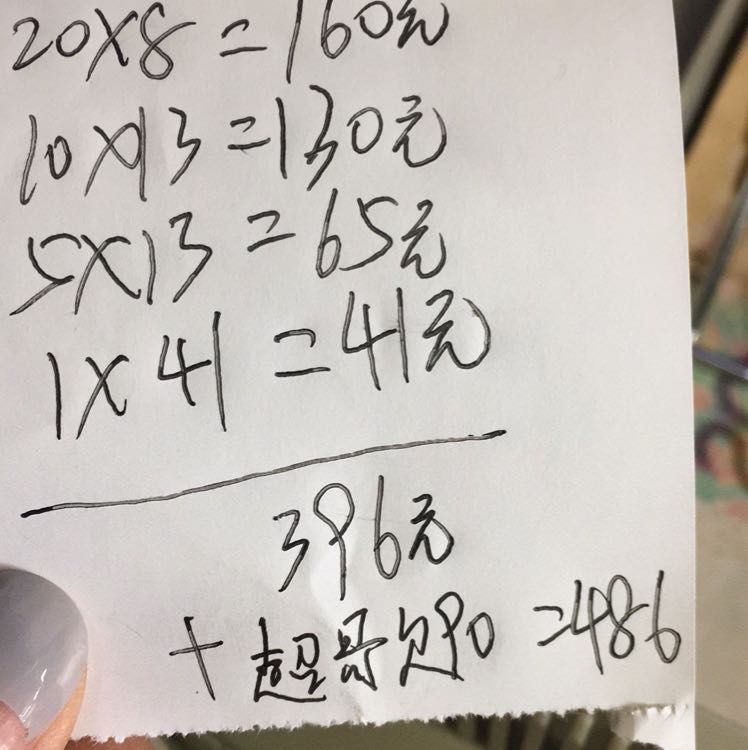 20×8=160元
10×13=130元
5×13=65元
1×41=41元
396元
+超哥欠90=486